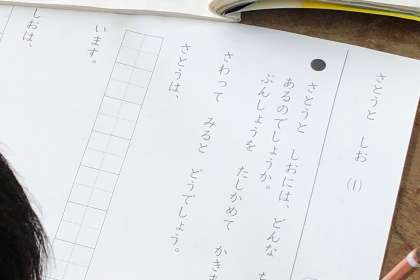 さとうと しお (1)
さとうと しおには、どんな
あるのでしょうか。
ぶんしょうを たしかめて かき
さわって みると どうでしょう。
さとうは、
います。
しおは、